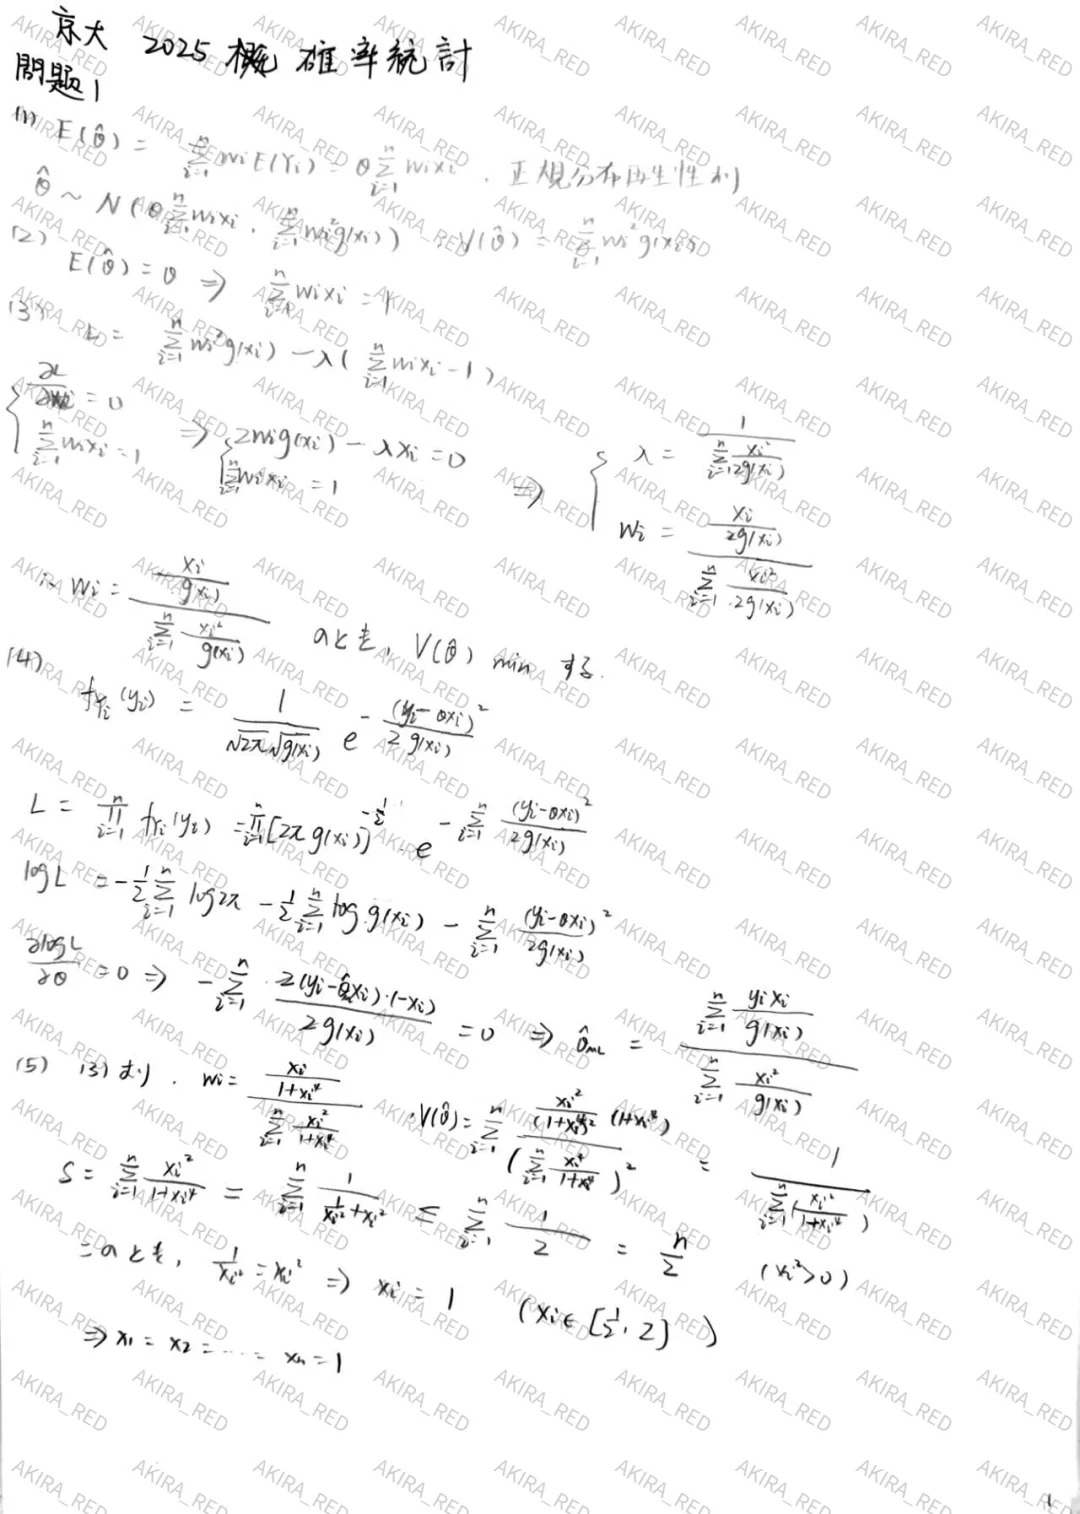 京大 2025 概 確率統計
問題1
(1) E(θ̂) = Σ_{i=1}^{n} wi E(Yi) = θ Σ_{i=1}^{n} wixi . 正規分布再生性より
θ̂ ~ N(θ Σ_{i=1}^{n} wixi , Σ_{i=1}^{n} wi²g(xi)) ∴ V(θ̂) = Σ_{i=1}^{n} wi² g(xi)
(2)
E(θ̂) = θ ⇒ Σ_{i=1}^{n} wixi = 1
(3) L = Σ_{i=1}^{n} wi²g(xi) − λ( Σ_{i=1}^{n} wixi − 1 )
{ ∂L/∂wi = 0 , Σ_{i=1}^{n} wixi = 1 ⇒ { 2wig(xi) − λxi = 0 , Σ_{i=1}^{n} wixi = 1 ⇒ { λ = 1 / Σ_{i=1}^{n} xi²/2g(xi) , wi = (xi/2g(xi)) / (Σ_{i=1}^{n} xi²/2g(xi))
∴ wi = (xi/g(xi)) / (Σ_{i=1}^{n} xi²/g(xi)) のとき, V(θ̂) min する.
(4)
f_{Yi}(yi) = 1/(√2π √g(xi)) e^{− (yi−θxi)²/2g(xi)}
L = Π_{i=1}^{n} f_{Yi}(yi) = Π_{i=1}^{n} [2π g(xi)]^{−1/2} · e^{− Σ_{i=1}^{n} (yi−θxi)²/2g(xi)}
log L = −1/2 Σ_{i=1}^{n} log2π − 1/2 Σ_{i=1}^{n} log g(xi) − Σ_{i=1}^{n} (yi−θxi)²/2g(xi)
∂logL/∂θ = 0 ⇒ − Σ_{i=1}^{n} 2(yi−θ̂xi)·(−xi)/2g(xi) = 0 ⇒ θ̂_{ML} = (Σ_{i=1}^{n} yixi/g(xi)) / (Σ_{i=1}^{n} xi²/g(xi))
(5) (3)より . wi = (xi/(1+xi⁴)) / (Σ_{i=1}^{n} xi²/(1+xi⁴)) . V(θ̂) = Σ_{i=1}^{n} (xi²/(1+xi⁴)² (1+xi⁴)) / (Σ_{i=1}^{n} xi²/(1+xi⁴))² = 1 / Σ_{i=1}^{n} (xi²/(1+xi⁴))
S = Σ_{i=1}^{n} xi²/(1+xi⁴) = Σ_{i=1}^{n} 1/(1/xi² + xi²) ≤ Σ_{i=1}^{n} 1/2 = n/2 (xi²>0)
= のとき, 1/xi² = xi² ⇒ xi = 1 (xi ∈ [1/2, 2])
⇒ x1 = x2 = ⋯ = xn = 1
1
AKIRA_RED